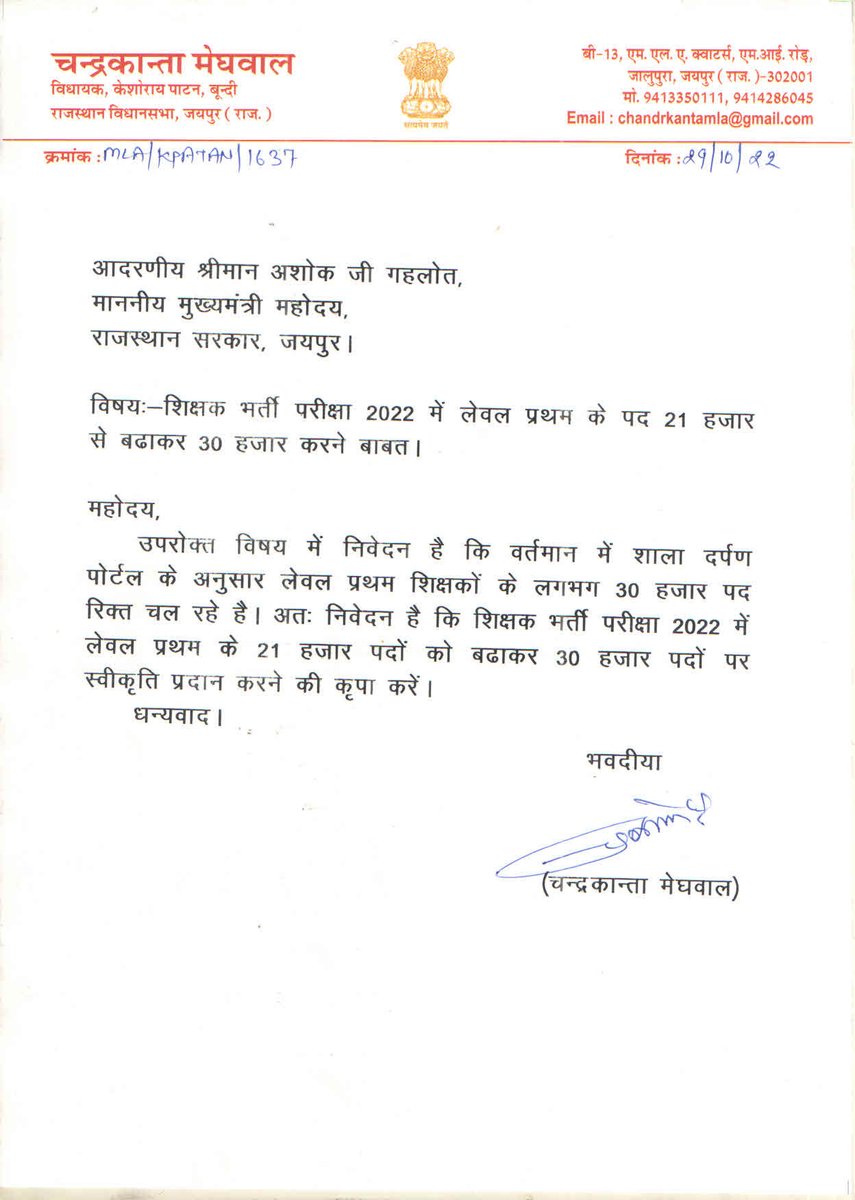 चन्द्रकान्ता मेघवाल
विधायक, केशोराय पाटन, बून्दी
राजस्थान विधानसभा, जयपुर ( राज. )
सत्यमेव जयते
बी-13, एम. एल. ए. क्वाटर्स, एम.आई. रोड़,
जालुपुरा, जयपुर ( राज. )-302001
मां. 9413350111, 9414286045
Email : chandrkantamla@gmail.com
क्रमांक : MLA/KPATAN/1637
दिनांक : 29/10/22
आदरणीय श्रीमान अशोक जी गहलोत,
माननीय मुख्यमंत्री महोदय,
राजस्थान सरकार, जयपुर।
विषयः–शिक्षक भर्ती परीक्षा 2022 में लेवल प्रथम के पद 21 हजार
से बढाकर 30 हजार करने बाबत।
महोदय,
उपरोक्त विषय में निवेदन है कि वर्तमान में शाला दर्पण
पोर्टल के अनुसार लेवल प्रथम शिक्षकों के लगभग 30 हजार पद
रिक्त चल रहे है। अतः निवेदन है कि शिक्षक भर्ती परीक्षा 2022 में
लेवल प्रथम के 21 हजार पदों को बढाकर 30 हजार पदों पर
स्वीकृति प्रदान करने की कृपा करें।
धन्यवाद।
भवदीया
(चन्द्रकान्ता मेघवाल)